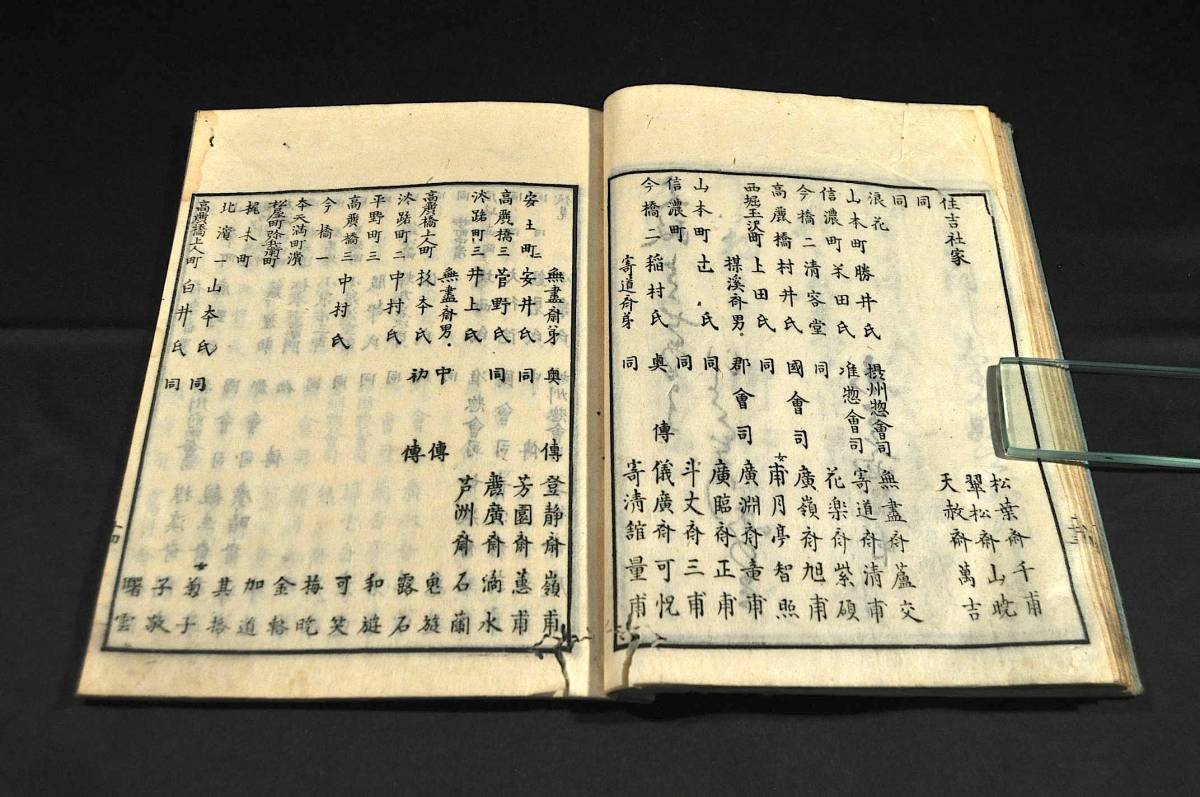 住吉社家 松葉斎 千甫
同 翠松斎 山暁
同 天赦斎 萬吉
浪花 無盡斎 蘆交
山本町 勝井氏 摂州惣會司 寄道斎 清甫
信濃町 米田氏 准惣會司 花楽斎 紫碩
今橋二 清容堂 同 廣嶺斎 旭甫
高麗橋 村井氏 國會司 女 甫月亭 智照
西堀玉沢町 上田氏 同 廣淵斎 竜甫
楳溪斎男 郡會司 廣臨斎 正甫
山本町 辻氏 同 斗丈斎 三甫
信濃町 同 儀廣斎 可悦
今橋二 稲村氏 奥傳 寄清舘 量甫
寄道斎弟 同
安土町二 無盡斎弟 奥傳 登静斎 嶺甫
高麗橋三 安井氏 同 芳園斎 蕙甫
淡路町三 菅野氏 同 廣斎 水
井上氏 芦洲斎 石蘭
無盡斎男 中傳 兎旋
高麗橋上人町 杉本氏 初傳 露石
淡路町二 中村氏 和旋
平野町三 可笑
高麗橋三 中村氏 梅吃
今橋一 金格
奉天満町濱 加道
松屋町弥兵衛町 其格
梶木町 女 菊子
北濱一 山本氏 同 子敬
高麗橋上人町 白井氏 同 曙雲